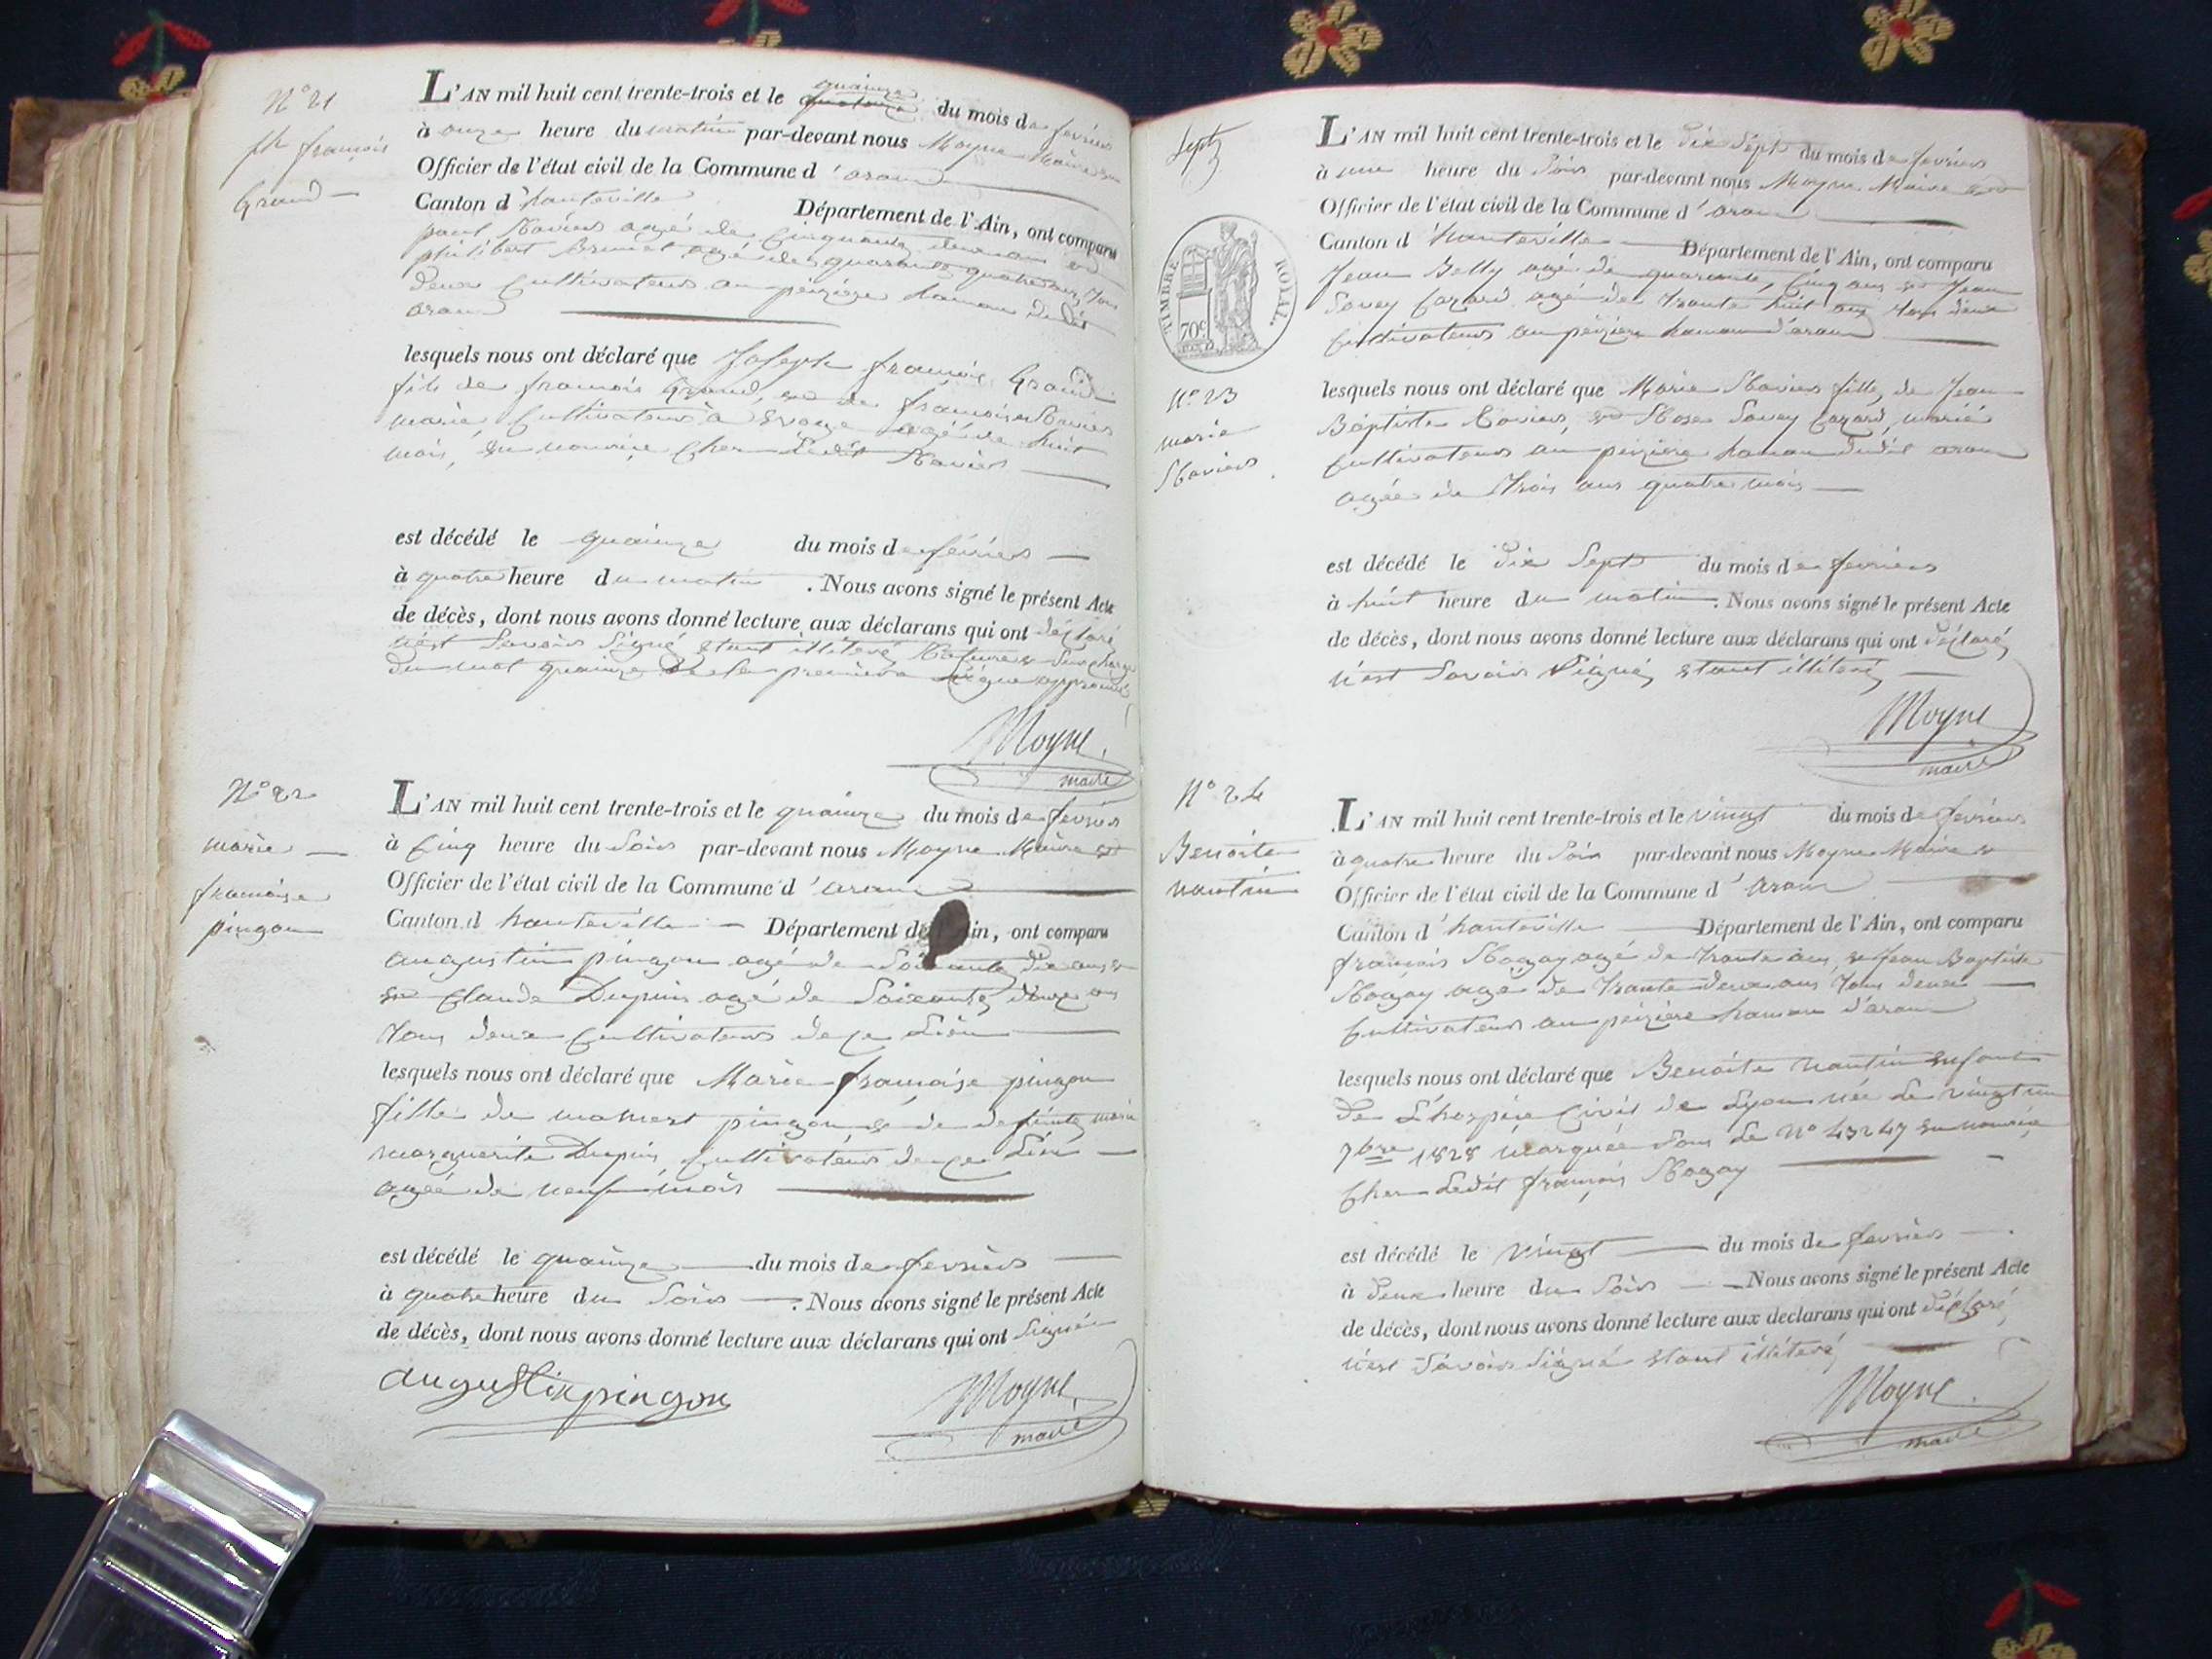 N° 21
jh françois
Grand
L'AN mil huit cent trente-trois et le quainze du mois de fevrier
à onze heure du matin par-devant nous Moyne Maire et
Officier de l'état civil de la Commune d'aran
Canton d'hauteville Département de l'Ain, ont comparu
paul Raviers agé de Cinquante deux ans et
philibert Brunet agé de quarante quatre ans, Tous
deux Cultivateurs au peizière hamau dudit
aran
lesquels nous ont déclaré que Joseph françois Grand
fils de françois Grand, et de françoise Ravier
marié Cultivateurs à agé de huit
mois, en nourrice Chez Ledit Raviers
est décédé le quainze du mois de fevriers
à quatre heure du matin. Nous avons signé le présent Acte
de décès, dont nous avons donné lecture aux déclarans qui ont déclaré
n'est Savoir Signé étant illiteré Rature et Surcharge
du mot quainze de la première Ligne approuvé
Moyne
maire
N° 22
marie
françoise
pingon
L'AN mil huit cent trente-trois et le quainze du mois de fevrier
à Cinq heure du Soir par-devant nous Moyne Maire et
Officier de l'état civil de la Commune d'aran
Canton d hauteville Département de l'Ain, ont comparu
augustin pingon agé de Soixante dix ans et
et Claude Dupuis agé de Soixante douze ans
Tous deux Cultivateurs de ce Lieu
lesquels nous ont déclaré que Marie françoise pingon
fille de mamert pingon et de defeinte marie
marguerite Dupuis Cultivateurs de ce Lieu
agée de neuf mois
est décédé le quainze du mois de fevriers
à quatre heure du Soir. Nous avons signé le présent Acte
de décès, dont nous avons donné lecture aux déclarans qui ont Signée
augustin pingon
Moyne
maire
Sept
TIMBRE ROYAL.
70c
N° 23
marie
Raviers
L'AN mil huit cent trente-trois et le Dix Sept du mois de fevriers
à une heure du Soir par-devant nous Moyne Maire et
Officier de l'état civil de la Commune d'aran
Canton d'hauteville Département de l'Ain, ont comparu
Jean Belly agé de quarante, Cinq ans et Jean
Savey Cazard agé de Trante huit ans Tous deux
Cultivateurs au peizière hamau d'aran
lesquels nous ont déclaré que Marie Raviers fille de Jean
Baptiste Raviers, et Rose Savey Cazard, marié
Cultivateurs au peizière hamau dudit aran
agée de Trois ans quatre mois
est décédé le Dix Sept du mois de fevriers
à huit heure du matin. Nous avons signé le présent Acte
de décès, dont nous avons donné lecture aux déclarans qui ont déclaré
n'est Savoir Signé, etant illiteré
Moyne
maire
N° 24
Benoite
nantin
L'AN mil huit cent trente-trois et le vingt du mois de fevriers
à quatre heure du Soir par-devant nous Moyne Maire et
Officier de l'état civil de la Commune d'aran
Canton d'hauteville Département de l'Ain, ont comparu
françois Rogay agé de Trante ans, et Jean Baptiste
Rogay agé de Trante deux ans Tous deux
Cultivateurs au peizière hamau d'aran
lesquels nous ont déclaré que Benoite nantin enfant
de L'hospice Civil de Lyon née Le vingt un
7bre 1828 marquée sous Le N° 43247 en nourrice
Chez Ledit françois Rogay
est décédé le vingt du mois de fevriers
à Deux heure du Soir Nous avons signé le présent Acte
de décès, dont nous avons donné lecture aux déclarans qui ont déclaré
n'est Savoir Signé etant illiteré
Moyne
maire